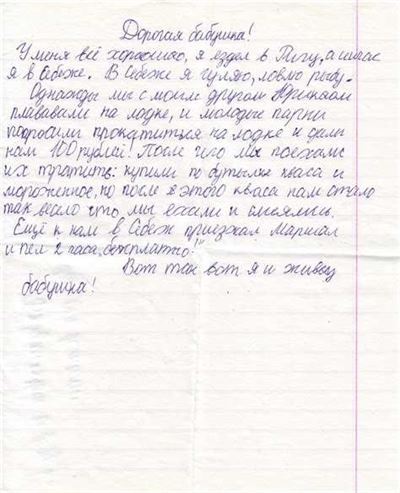 Дорогая бабушка!
У меня всё хорошо, я ездел в Ригу, а сейчас
я в Себеже. В Себеже я гуляю, ловлю рыбу.
Однажды мы с моим другом Юриком
плавали на лодке, и молодые парни
попросили прокатиться на лодке и дали
нам 100 рублей! После чего мы поехали
их тратить: купили по бутылке кваса и
мороженное, но после этого кваса нам стало
так весело что мы ехали и смеялись.
Ещё к нам в Себеж приезжал Маршал
и пел 2 часа, бесплатно!"
Вот так вот я и живу
бабушка!